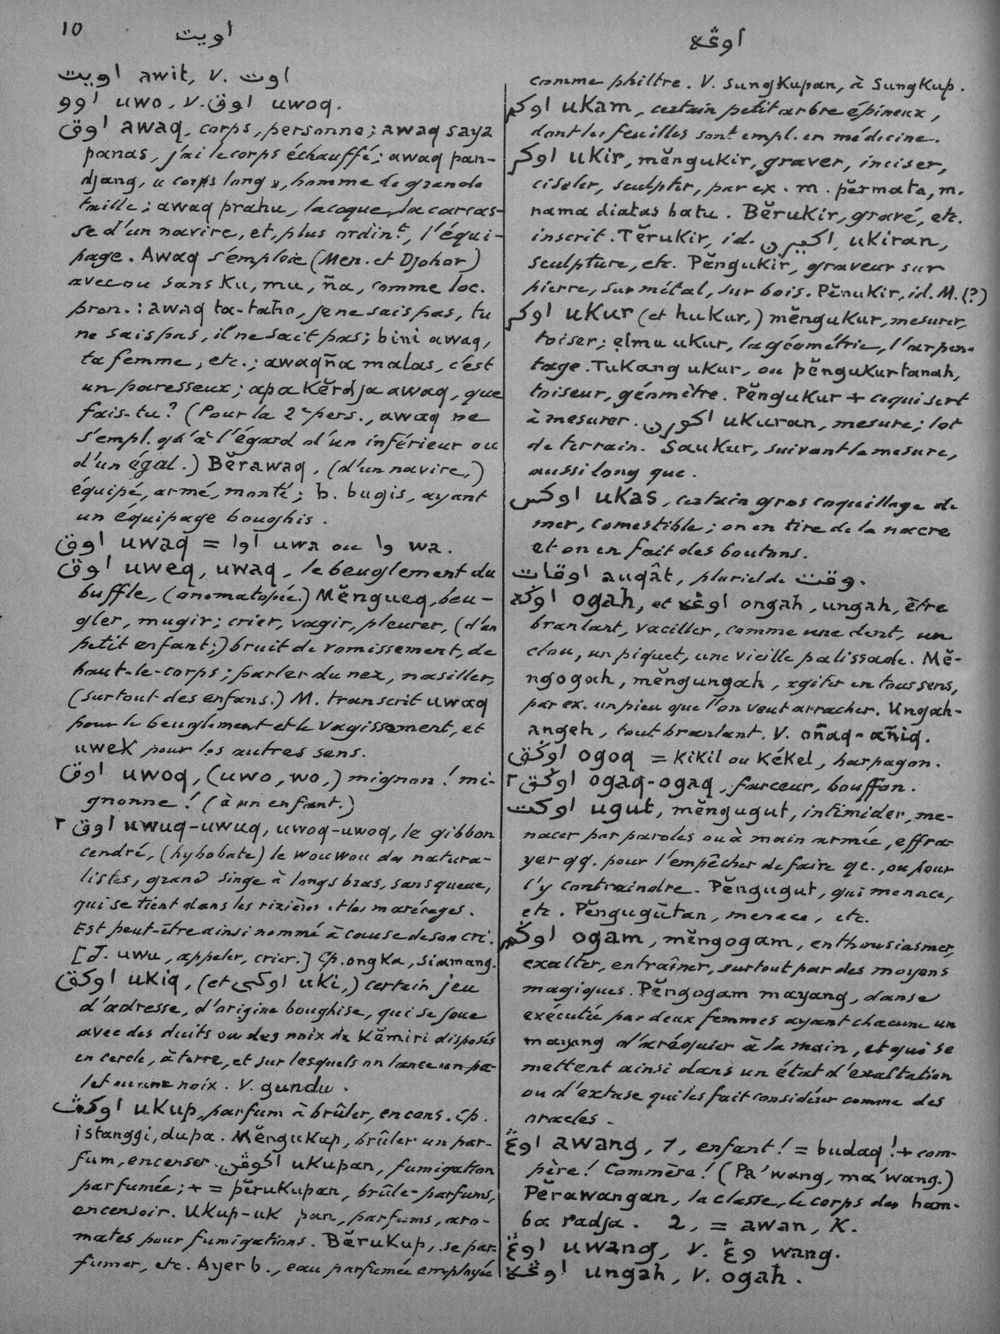 10 اويت اوڠه
اويت awit, v. اوت
اوو uwo, v. اوق uwoq.
اوق awaq, corps, personne; awaq saya
panas, j'ai le corps échauffé; awaq pan-
djang, « corps long », homme de grande
taille; awaq prahu, la coque, la carcas-
se d'un navire, et, plus ordin.t, l'équi-
page. Awaq s'emploie (Men. et Djohor)
avec ou sans Ku, mu, ña, comme loc.
pron.: awaq ta-taho, je ne sais pas, tu
ne sais pas, il ne sait pas; bini awaq,
ta femme, etc.; awaqña malas, c'est
un paresseux; apa Kĕrdja awaq, que
fais-tu? (Pour la 2e pers., awaq ne
s'empl. qu'à l'égard d'un inférieur ou
d'un égal.) Bĕrawaq, (d'un navire,)
équipé, armé, monté; b. bugis, ayant
un équipage boughis.
اوق uwaq = اوا uwa ou وا wa.
اوق uweq, uwaq, le beuglement du
buffle, (onomatopée.) Mĕngueq, beu-
gler, mugir; crier, vagir, pleurer, (d'un
petit enfant;) bruit de vomissement, de
haut-le-corps; parler du nez, nasiller,
(surtout des enfans.) M. transcrit uwaq
pour le beuglement et le vagissement, et
uwek pour les autres sens.
اوق uwoq, (uwo, wo,) mignon! mi-
gnonne! (à un enfant.)
اوق٢ uwuq-uwuq, uwoq-uwoq, le gibbon
cendré, (hylobate) le wouwou des natura-
listes, grand singe à longs bras, sans queue,
qui se tient dans les rizières et les marécages.
Est peut-être ainsi nommé à cause de son cri.
[J. uwu, appeler, crier.] Cp. ongka, siamang.
اوكق ukiq, (et اوكى uki,) certain jeu
d'adresse, d'origine boughise, qui se joue
avec des duits ou des noix de Kĕmiri disposés
en cercle, à terre, et sur lesquels on lance un pa-
let ou une noix. V. gundu.
اوكڤ ukup, parfum à brûler, encens. Cp.
istanggi, dupa. Mĕngukup, brûler un par-
fum, encenser. اكوڤن ukupan, fumigation
parfumée; + = pĕrukupan, brûle-parfums,
encensoir. Ukup-uk pan, parfums, aro-
mates pour fumigations. Bĕrukup, se par-
fumer, etc. Ayer b., eau parfumée employée
comme philtre. V. sungkupan, à sungkup.
اوكم ukam, certain petit arbre épineux,
dont les feuilles sont empl. en médecine.
اوكر ukir, mĕngukir, graver, inciser,
ciseler, sculpter, par ex. m. pĕrmata, m.
nama diatas batu. Bĕrukir, gravé, etc.
inscrit. Tĕrukir, id. اكيرن ukiran,
sculpture, etc. Pĕngukir, graveur sur
pierre, sur métal, sur bois. Pĕnukir, id. M. (?)
اوكر ukur (et hukur,) mĕngukur, mesurer,
toiser; elmu ukur, la géométrie, l'arpen-
tage. Tukang ukur, ou pĕngukur tanah,
toiseur, géomètre. Pĕngukur + ce qui sert
à mesurer. اكورن ukuran, mesure; lot
de terrain. Saukur, suivant la mesure,
aussi long que.
اوكس ukas, certain gros coquillage de
mer, comestible; on en tire de la nacre
et on en fait des boutons.
اوقات auqât, pluriel de وقت.
اوكه ogah, et اوڠه ongah, ungah, être
branlant, vaciller, comme une dent, un
clou, un piquet, une vieille palissade. Mĕ-
ngogah, mĕngungah, agiter en tous sens,
par ex. un pieu que l'on veut arracher. Ungah-
angeh, tout branlant. V. oñaq-añiq.
اوݢق ogoq = kikil ou kékel, harpagon.
اوݢق٢ ogaq-ogaq, farceur, bouffon.
اوݢت ugut, mĕngugut, intimider, me-
nacer par paroles ou à main armée, effra-
yer qq. pour l'empêcher de faire qc., ou pour
l'y contraindre. Pĕngugut, qui menace,
etc. Pĕngugutan, menace, etc.
اوݢم ogam, mĕngogam, enthousiasmer,
exalter, entraîner, surtout par des moyens
magiques. Pĕngogam mayang, danse
exécutée par deux femmes ayant chacune un
mayang d'aréquier à la main, et qui se
mettent ainsi dans un état d'exaltation
ou d'extase qui les fait considérer comme des
oracles.
اوڠ awang, 1, enfant! = budaq! + com-
père! Commère! (Pa'wang, ma'wang.)
Pĕrawangan, la classe, le corps des ham-
ba radja. 2, = awan, K.
اوڠ uwang, v. وڠ wang.
اوڠه ungah, v. ogah.